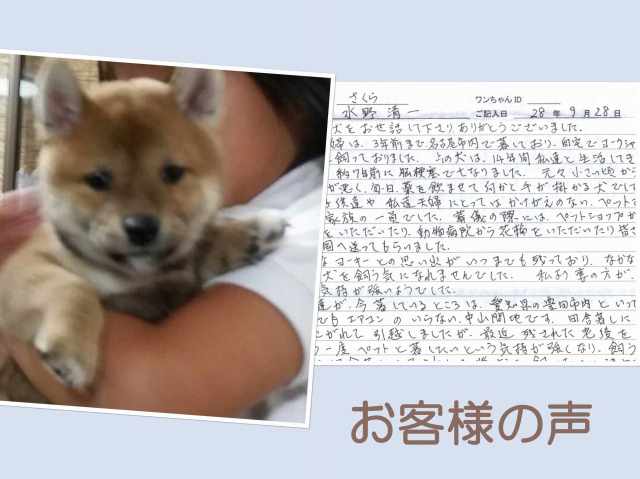 さくら ワンちゃんID
水野 清一 ご記入日 28年 9月28日
犬をお世話して下さりありがとうございました。
婦は、3年前まで名古屋市内で暮しており、自宅でヨークシャ
飼っておりました。この犬は、14年間 私達と生活してき
約7年前に脳梗塞で亡くなりました。元々小さい頃から
が悪く、毎日、薬を飲ませて何かと手が掛かる犬でし
私達夫婦にとってはかけがえのないペットで
家族の一員でした。葬儀の際には、ペットショップ
をいただいたり、動物病院から花輪をいただいたり皆さ
国へ送ってもらいました。
なヨーキーとの思い出がいつまでも残っており、なかな
犬を飼う気になれませんでした。私より妻の方が、
気持が強いようでした。
達が、今暮しているところは、愛知県の豊田市内といって
でもエアコンのいらない中山間地です。田舎暮しに
こがれて引越しましたが、最近残された老後を
う一度ペットと暮したいという気持が強くなり、飼う
お客様の声